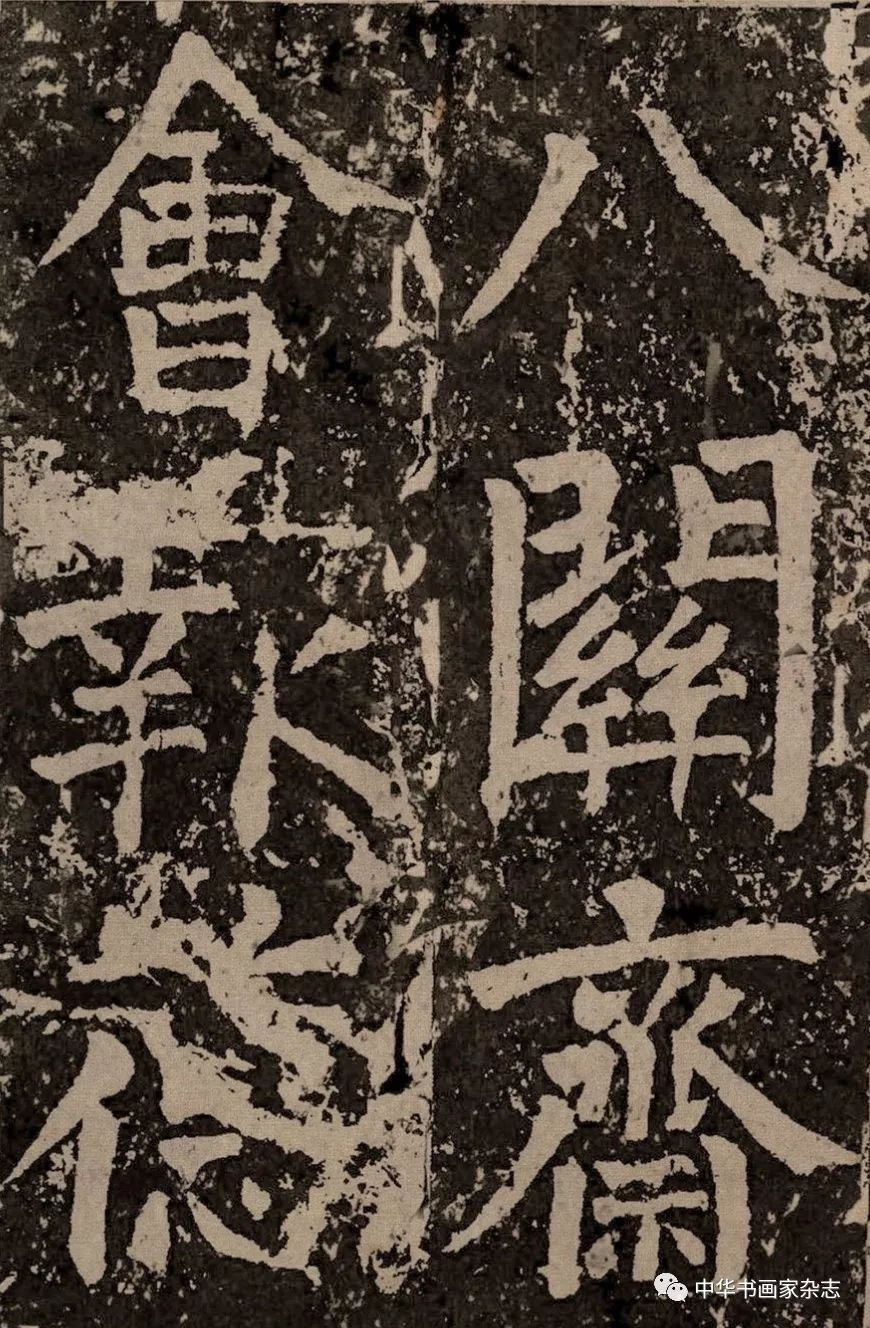 八關齋
會報德
中华书画家杂志